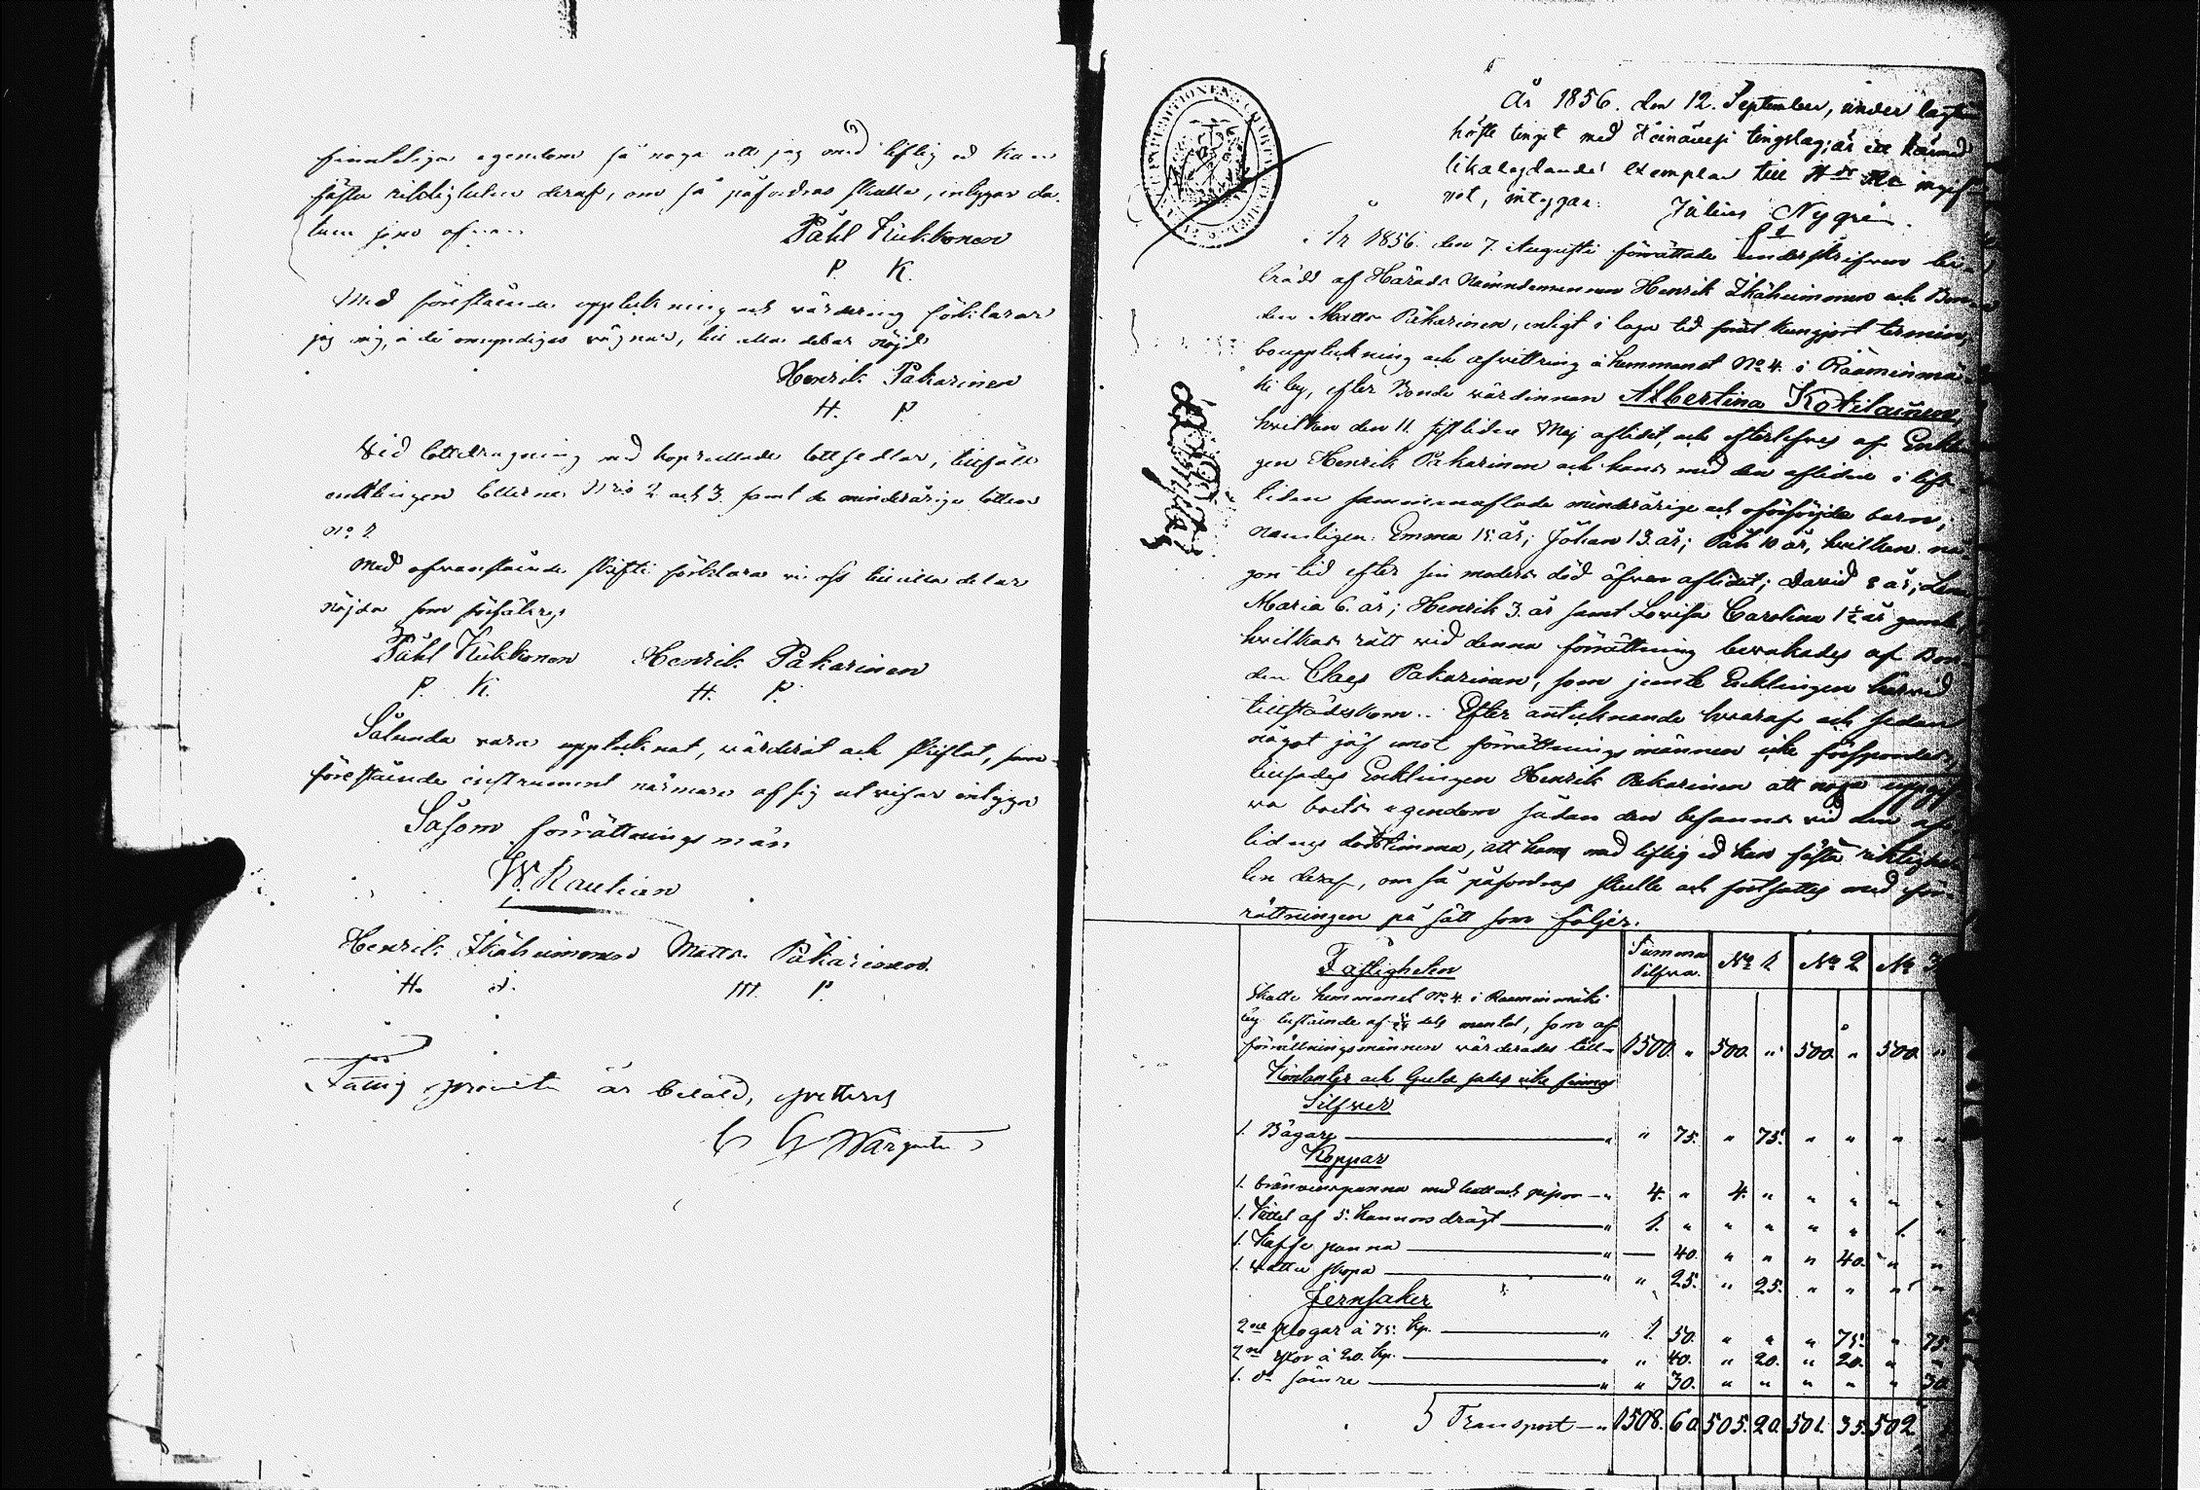 egendom så noga att jag med liflig ed kan
fästa riktigheten deraf, om så påfordras skulle, intygar da-
tum som ofvan
Påhl Kukkonen
P. K.
Med förestående uppteckning och värdering förklarar
jag mig, å de omyndigas vägnar, till alla delar nöjd
Henrik Pakarinen
H. P.
Vid lottdragning med hoprullade lottsedlar, tillföll
enklingen lotterne Nris 2 och 3. samt de minderårige lotten
No 1
Med ofvanstående skifte förklara vi oss till alla delar
nöjda som försäkras
Påhl Kukkonen Henrik Pakarinen
P. K. H. P.
Sålunda vara upptecknat, värderat och skiftat, som
förestående instrument närmare af sig utvisar intyga
Såsom förrättningsmän
W. Rautian
Henrik Ikäheimonen Matts Päkarinen.
H. I. M. P.
Fattig procenten är betald,
År 1856. den 12. September, under lagtima
höste tinget med Heinävesi tingslag; är ett härmed
likalydande exemplar till ingif-
vet, intygar: Julius Nygrén
År 1856. den 7. Augusti förrättade underskrifven bi-
trädd af Härads Nämndemannen Henrik Ikäheimonen och Bon-
den Matts Päkarinen, enligt i laga tid kungjort termin,
bouppteckning och afvittring å hemmanet No 4. i Rääminmä-
ki by, efter Bonde värdinnan Albertina Kotilainen,
hvilken den 11. sistliden Maj aflidit, och efterlefves af Enklin-
gen Henrik Pakarinen och hans med den aflidne i lifs-
tiden sammanaflade minderårige och oförsörjde barn,
namligen: Emma 15. år; Johan 13. år; Påhl 10 år, hvilken nå-
gon tid efter sin moders död äfven aflidit; David 8 år;
Maria 6. år; Henrik 3. år samt Lovisa Carolina 1½ år gamla,
hvilkas rätt vid denna förrättning bevakades af Bon-
den Claes Pakarinen, som jemte Enklingen härvid
tillstädeskom. Efter antecknande hvaraf och sedan
något jäf mot förrättningsmännen icke försporders,
tillsades Enklingen Henrik Pakarinen att noga uppgif-
va boets egendom sådan den befanns vid den af-
lidnes dödstimma, att han med liflig ed kan fästa riktighe-
ten deraf, om så påfordras skulle och fortsattes med för-
rättningen på sätt som följer.
Fastigheten Summa Silfver. No 1 No 2 No 3
Skatte hemmanet No 4. i Rääminmäki
by bestående af dels mantal, som af
förrättningsmännen värderades till 1500. " 500. " 500. " 500. "
Kontanter och Guld sades icke finnas
Silfver
1. Bägare " 75. " 75. " " " "
Koppar
1. bränvinspanna med hatt och pipor 4. " 4. " " " " "
1. Kittel af 5. kannors drägt 1. " " " " " 1. "
1. Kaffe panna 40. " " " 40. " "
1. vatten skopa " 25. " 25. " " " "
Jernsaker
2ne plogar à 75. kp. 1. 50. " " " 75. " 75.
2ne à 20. kp. " 40. " 20. " 20. " "
1. do sämre " 30. " " " " " 30.
Transport 1508. 60. 505. 20. 501. 35. 502.